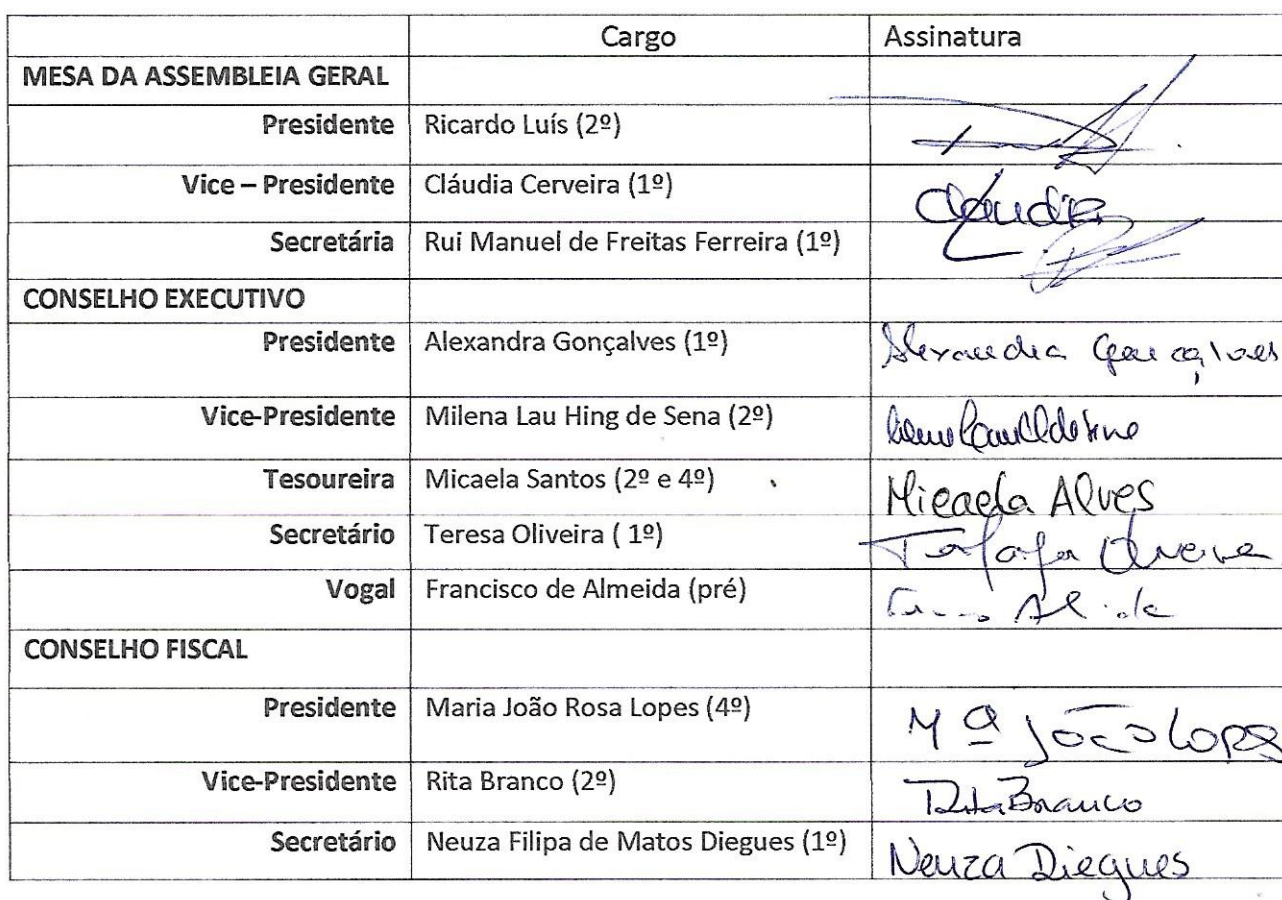 Cargo Assinatura
MESA DA ASSEMBLEIA GERAL
Presidente Ricardo Luís (2º)
Vice – Presidente Cláudia Cerveira (1º) Claudia
Secretária Rui Manuel de Freitas Ferreira (1º)
CONSELHO EXECUTIVO
Presidente Alexandra Gonçalves (1º) Alexandra Gonçalves
Vice-Presidente Milena Lau Hing de Sena (2º)
Tesoureira Micaela Santos (2º e 4º) Micaela Alves
Secretário Teresa Oliveira ( 1º)
Vogal Francisco de Almeida (pré)
CONSELHO FISCAL
Presidente Maria João Rosa Lopes (4º) Mª João Lopes
Vice-Presidente Rita Branco (2º) Rita Branco
Secretário Neuza Filipa de Matos Diegues (1º) Neuza Diegues